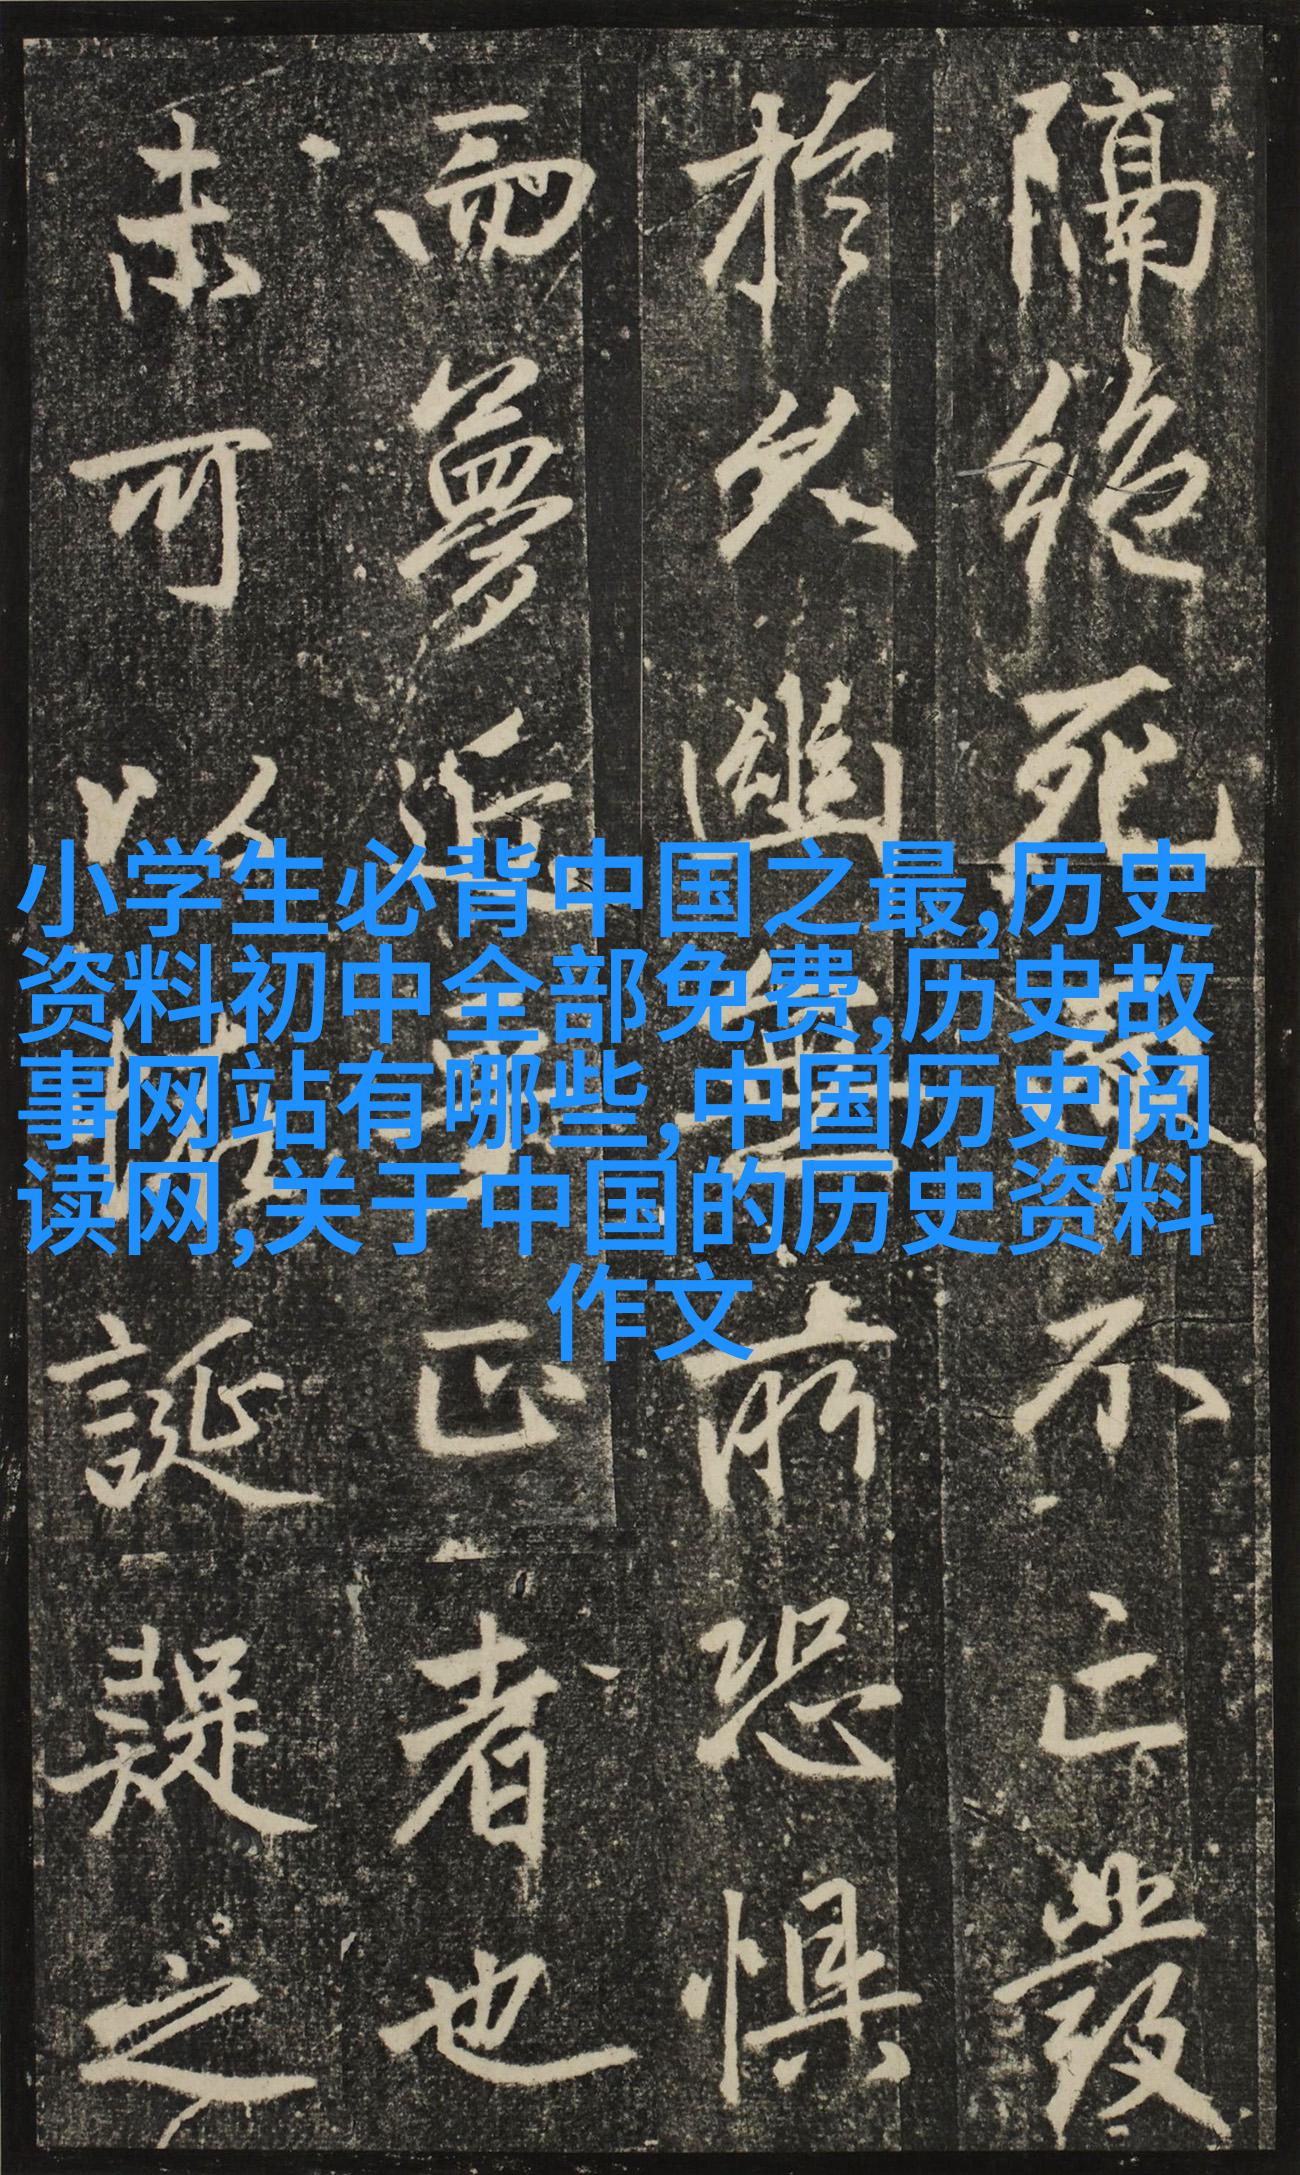 小学生必背中国之最,历史
资料初中全部免费,历史故
事网站有哪些,中国历史阅
读网,关于中国的历史资料
作文
隔絶死不亡發
於久幽無所恐懼
而夢近正者也
未可以誕疑之